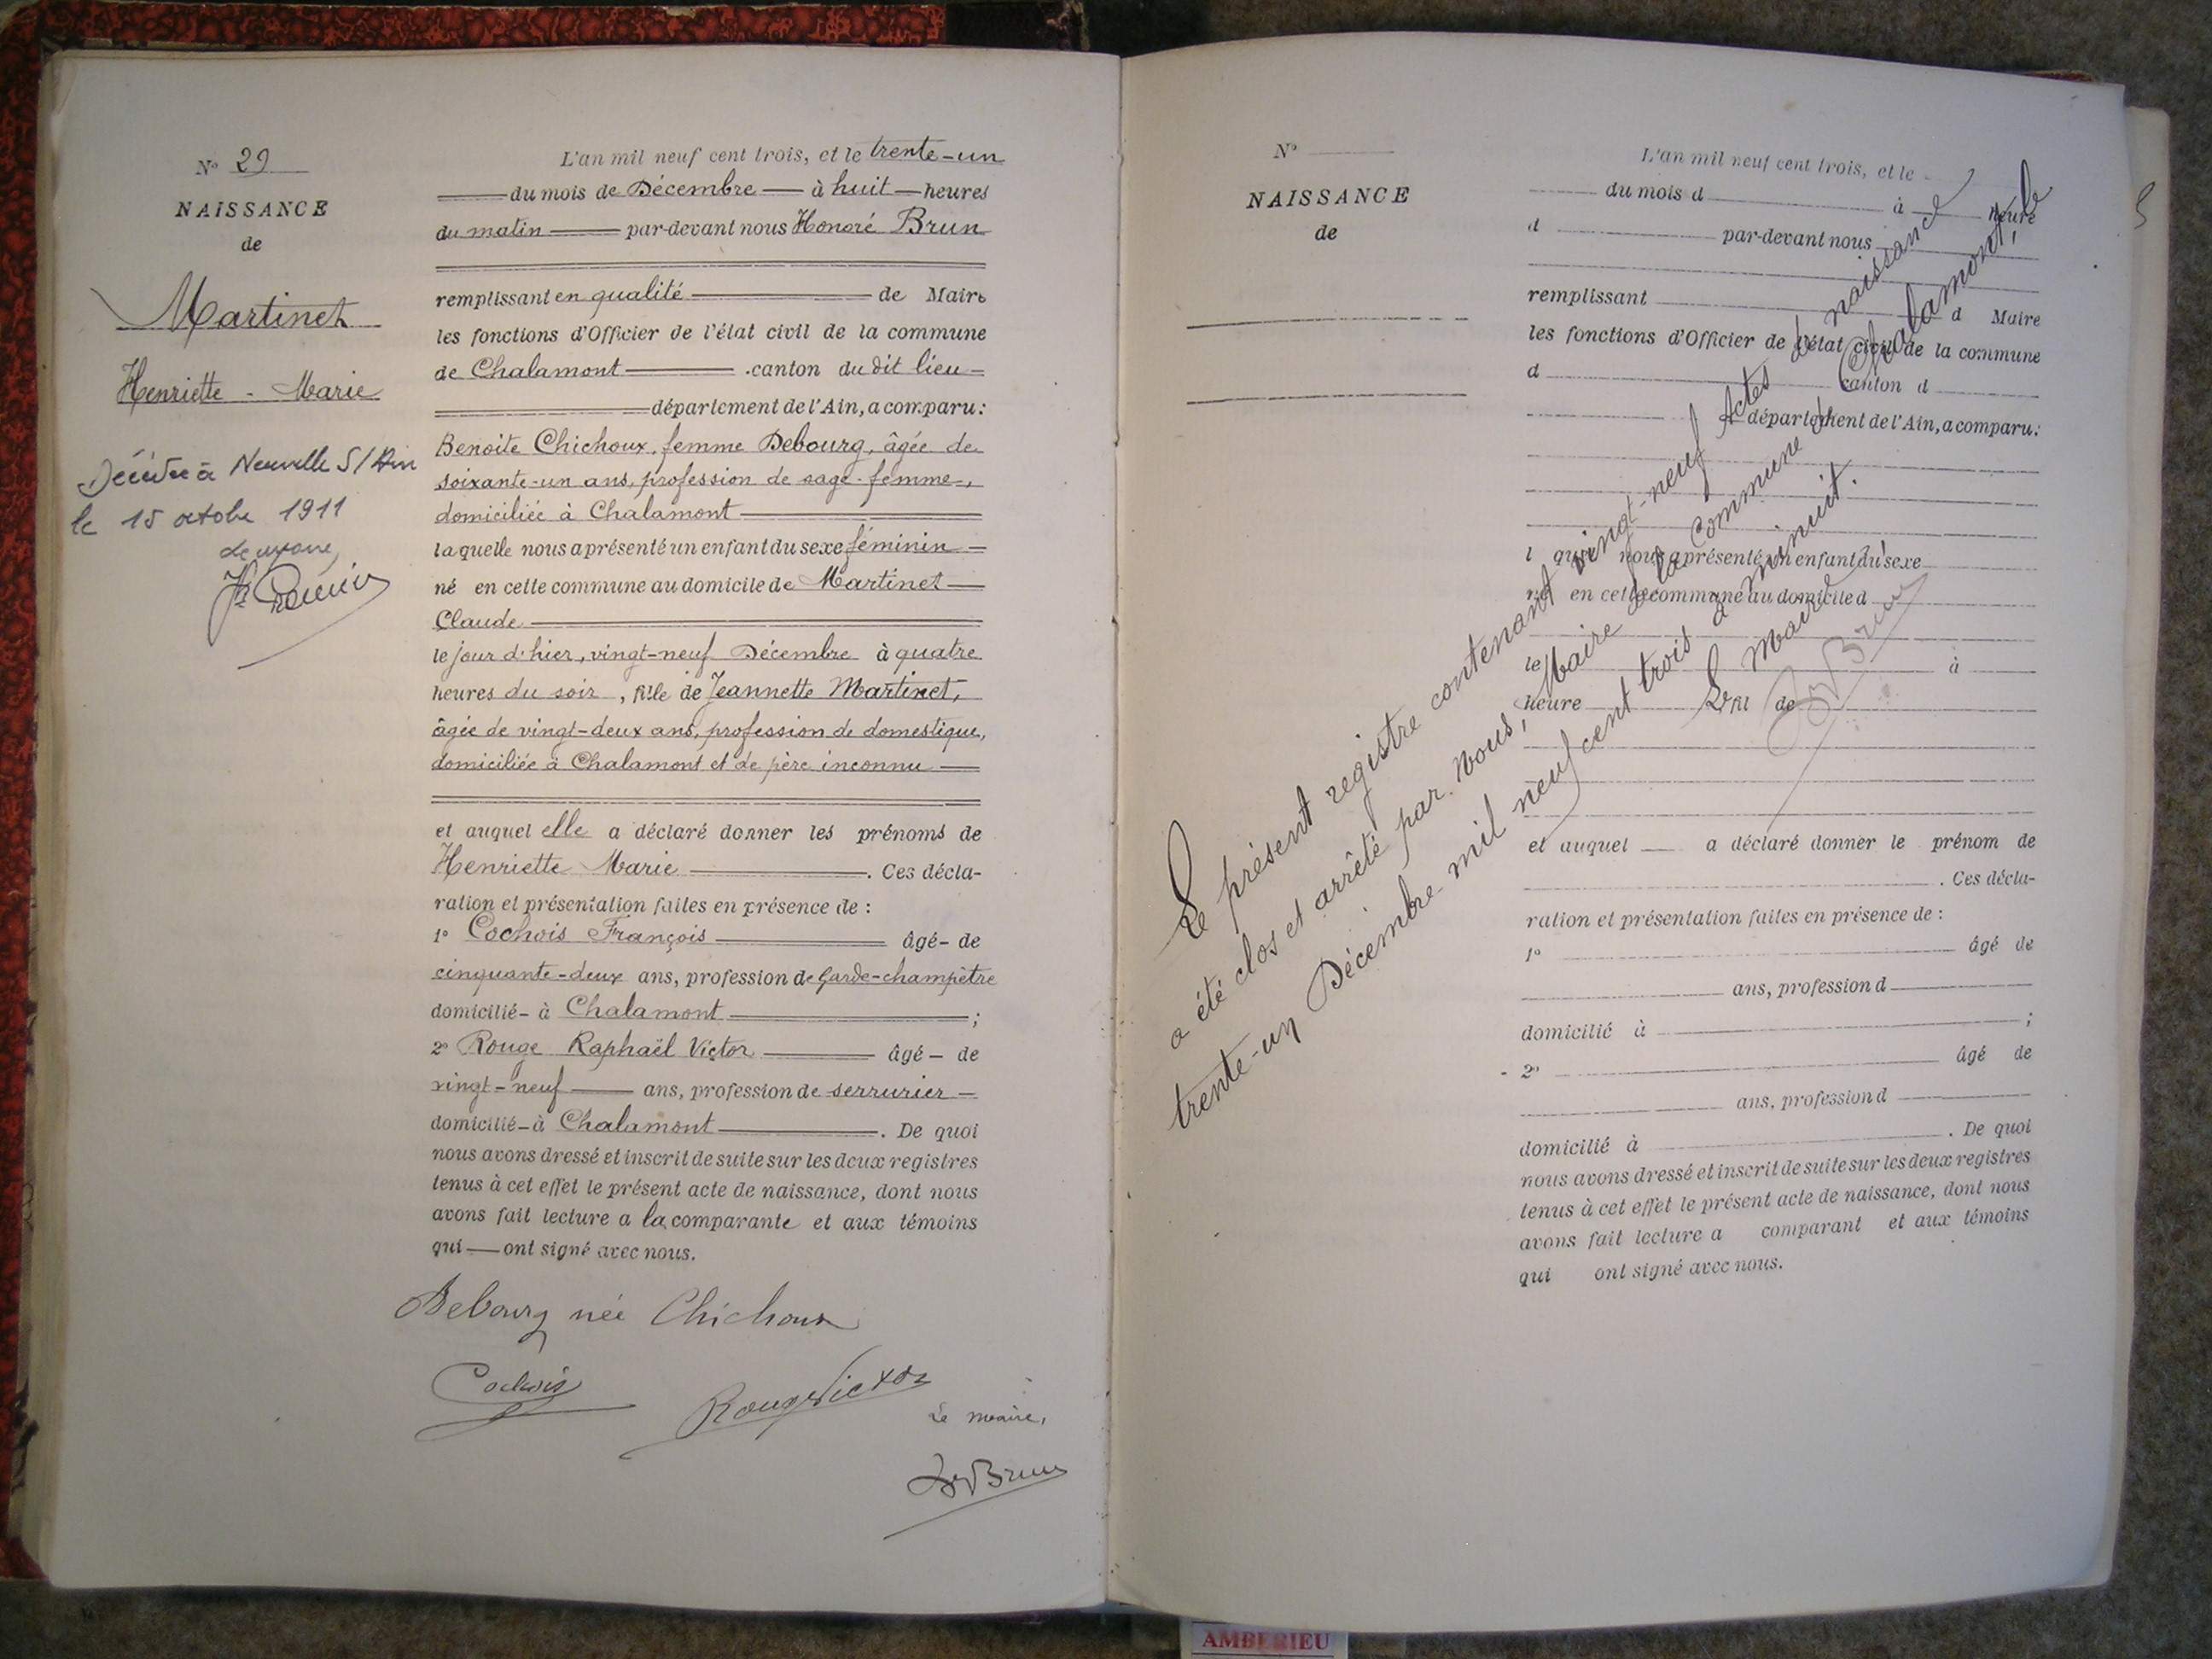 N° 29
NAISSANCE
de
Martinet
Henriette - Marie
Décédée à Neuville S/Ain
le 15 octobre 1911
L'an mil neuf cent trois, et le trente-un
du mois de Décembre — à huit — heures
du matin — par-devant nous Honoré Brun
remplissant en qualité — de Maire
les fonctions d'Officier de l'état civil de la commune
de Chalamont — . canton du dit lieu =
département de l'Ain, a comparu :
Benoite Chichoux, femme Debourg, âgée de
soixante-un ans, profession de sage-femme,
domiciliée à Chalamont
laquelle nous a présenté un enfant du sexe féminin —
né en cette commune au domicile de Martinet —
Claude
le jour d'hier, vingt-neuf Décembre à quatre
heures du soir, fille de Jeannette Martinet,
âgée de vingt-deux ans, profession de domestique,
domiciliée à Chalamont et de père inconnu —
et auquel elle a déclaré donner les prénoms de
Henriette Marie — . Ces décla-
ration et présentation faites en présence de :
1° Cochois François — âgé - de
cinquante-deux ans, profession de Garde-champêtre
domicilié - à Chalamont — ;
2° Rouge Raphaël Victor — âgé — de
vingt-neuf — ans, profession de serrurier —
domicilié - à Chalamont — . De quoi
nous avons dressé et inscrit de suite sur les deux registres
tenus à cet effet le présent acte de naissance, dont nous
avons fait lecture a la comparante et aux témoins
qui — ont signé avec nous.
Debourg née Chichoux
Cochois
Rouge Victor
Le maire,
Brun
N°
NAISSANCE
de
L'an mil neuf cent trois, et le
du mois d à heure
d par-devant nous
remplissant d Maire
les fonctions d'Officier de l'état civil de la commune
d canton d
département de l'Ain, a comparu :
l qu nous a présenté un enfant du sexe
né en cette commune au domicile d
le à
heure fil de
et auquel a déclaré donner le prénom de
. Ces décla-
ration et présentation faites en présence de :
1° âgé de
ans, profession d
domicilié à ;
2° âgé de
ans, profession d
domicilié à . De quoi
nous avons dressé et inscrit de suite sur les deux registres
tenus à cet effet le présent acte de naissance, dont nous
avons fait lecture a comparant et aux témoins
qui ont signé avec nous.
Le présent registre contenant vingt-neuf Actes de naissance
a été clos et arrêté par nous, Maire de la Commune de Chalamont, le
trente-un Décembre mil neuf cent trois à minuit.
Le Maire
Brun
AMBERIEU